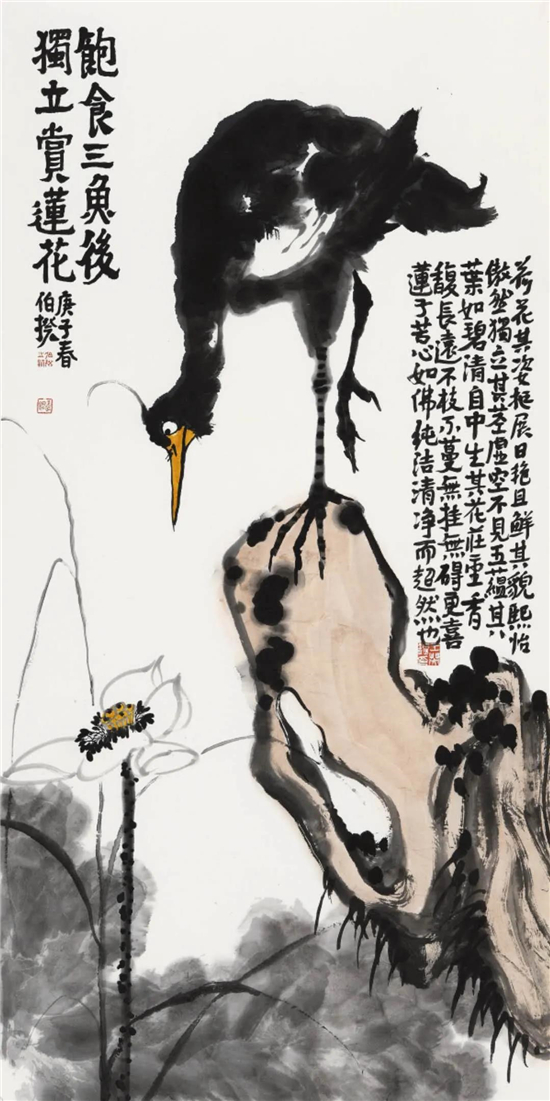 飽食三魚後
獨立賞蓮花
庚子春
伯揆
荷花其姿挺展日艳且鮮其貌熙怡
傲然獨立其茎虛空不見五蘊其
葉如碧清自中生其花莊重香
馥長遠不枝不蔓無挂無碍更喜
蓮子苦心如佛純洁清净而超然也